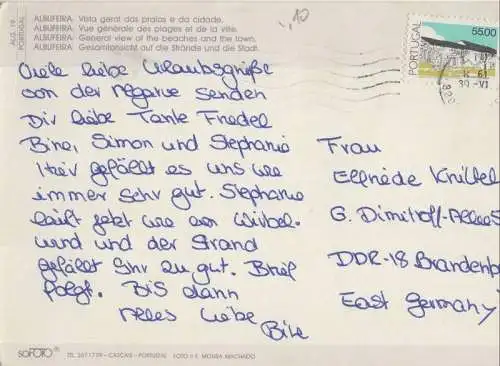 ALBUFEIRA. Vista geral das praias e da cidade.
ALBUFEIRA. Vue générale des plages et de la ville.
ALBUFEIRA. General view of the beaches and the town.
ALBUFEIRA. Gesamtansicht auf die Strände und die Stadt.
ALG. 19
PORTUGAL
-,10
PORTUGAL
5500
Viele liebe Urlaubsgrüße
von der Algarve senden
Dir liebe Tante Friedel
Bine, Simon und Stephanie
Hier gefällt es uns wie
immer sehr gut. Stephanie
läuft jetzt wie ein Wirbel-
wind und der Strand
gefällt Ihr zu gut. Brief
folgt. Bis dann
Alles Liebe
Bine
Frau
Elfriede Knüttel
G. Dimitroff-Allee 5
DDR-18 Brandenb
East Germany
SOFOTO ® TEL. 2671709 - CASCAIS - PORTUGAL FOTO J. F. MOURA MACHADO